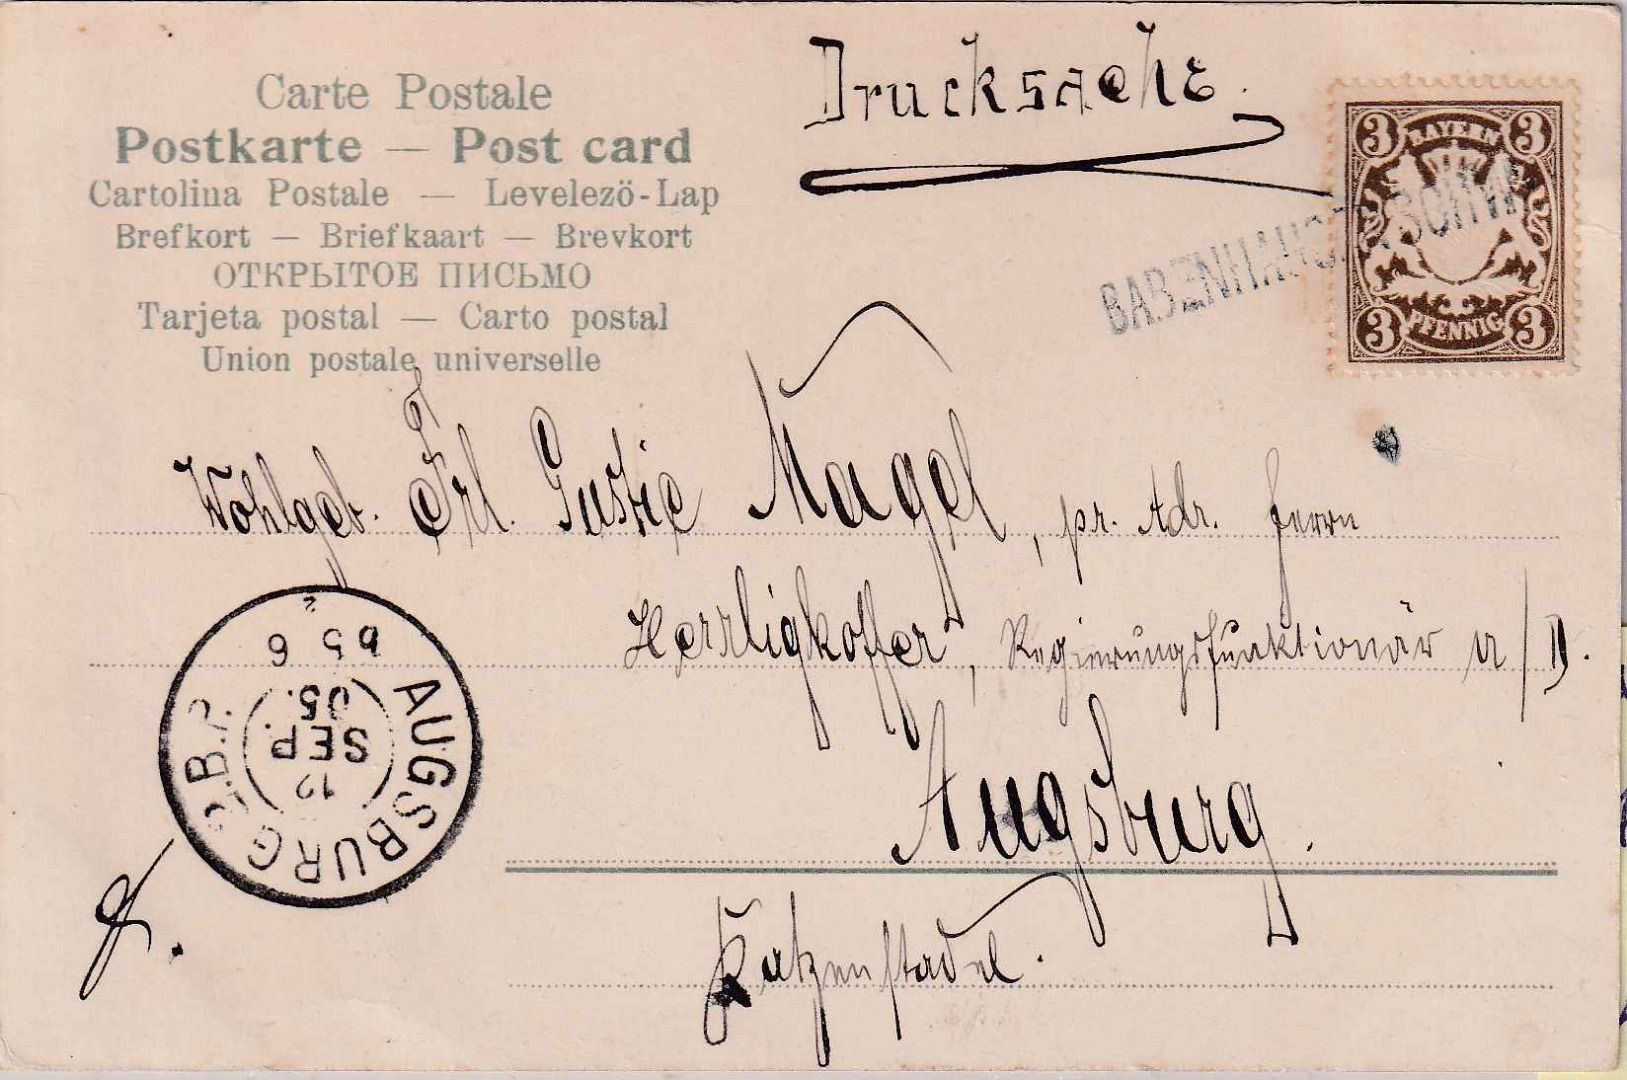 Carte Postale
Postkarte — Post card
Cartolina Postale — Levelező-Lap
Brefkort — Briefkaart — Brevkort
ОТКРЫТОЕ ПИСЬМО
Tarjeta postal — Carto postal
Union postale universelle
Drucksache.
3 BAYERN 3
3 PFENNIG 3
BABENHAUSEN SCHW
Wohlgeb. Frl. Gustie Nagel, pr. Adr. Herrn
Herrligkoffer, Regierungsfunktionär a/D.
Augsburg.
Katzenstadel.
AUGSBURG 2 B.P.
12
SEP.
05.